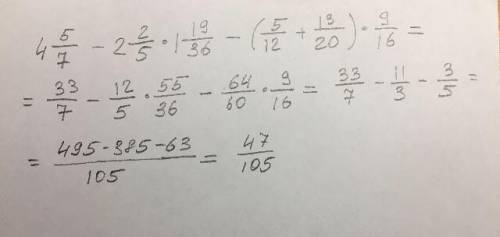 4 5/7 − 2 2/5 · 1 19/36 − (5/12 + 13/20) · 9/16 =
= 33/7 − 12/5 · 55/36 − 64/60 · 9/16 = 33/7 − 11/3 − 3/5 =
= 495-385-63/105 = 47/105